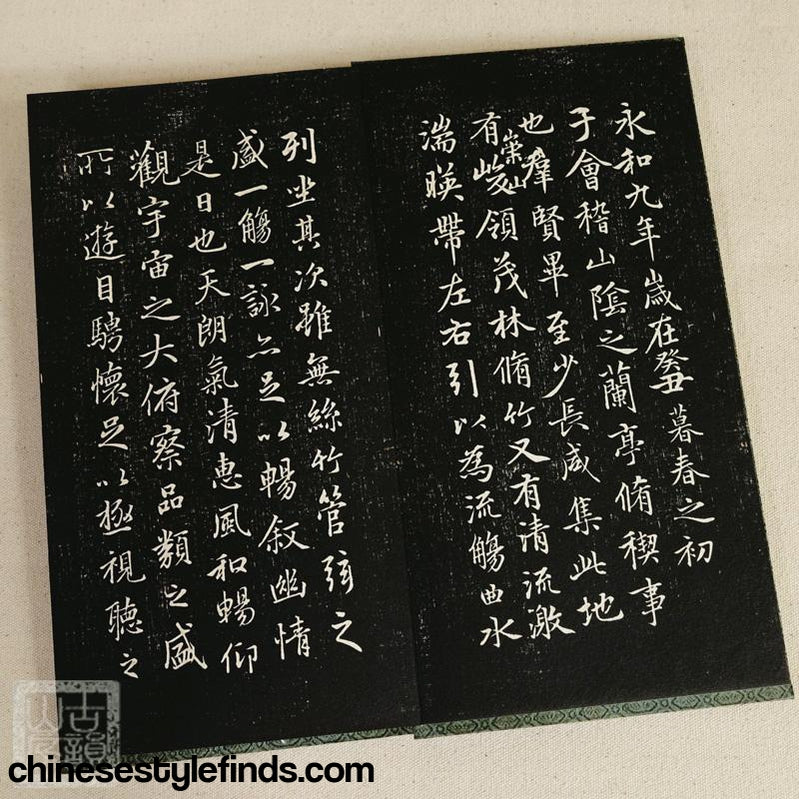 永和九年歲在癸丑暮春之初會
于會稽山陰之蘭亭脩稧事
也羣賢畢至少長咸集此地
有崇山峻領茂林脩竹又有清流激
湍暎帶左右引以為流觴曲水
列坐其次雖無絲竹管弦之
盛一觴一詠亦足以暢敘幽情
是日也天朗氣清惠風和暢仰
觀宇宙之大俯察品類之盛
所以遊目騁懷足以極視聽之
古韻
chinesestylefinds.com